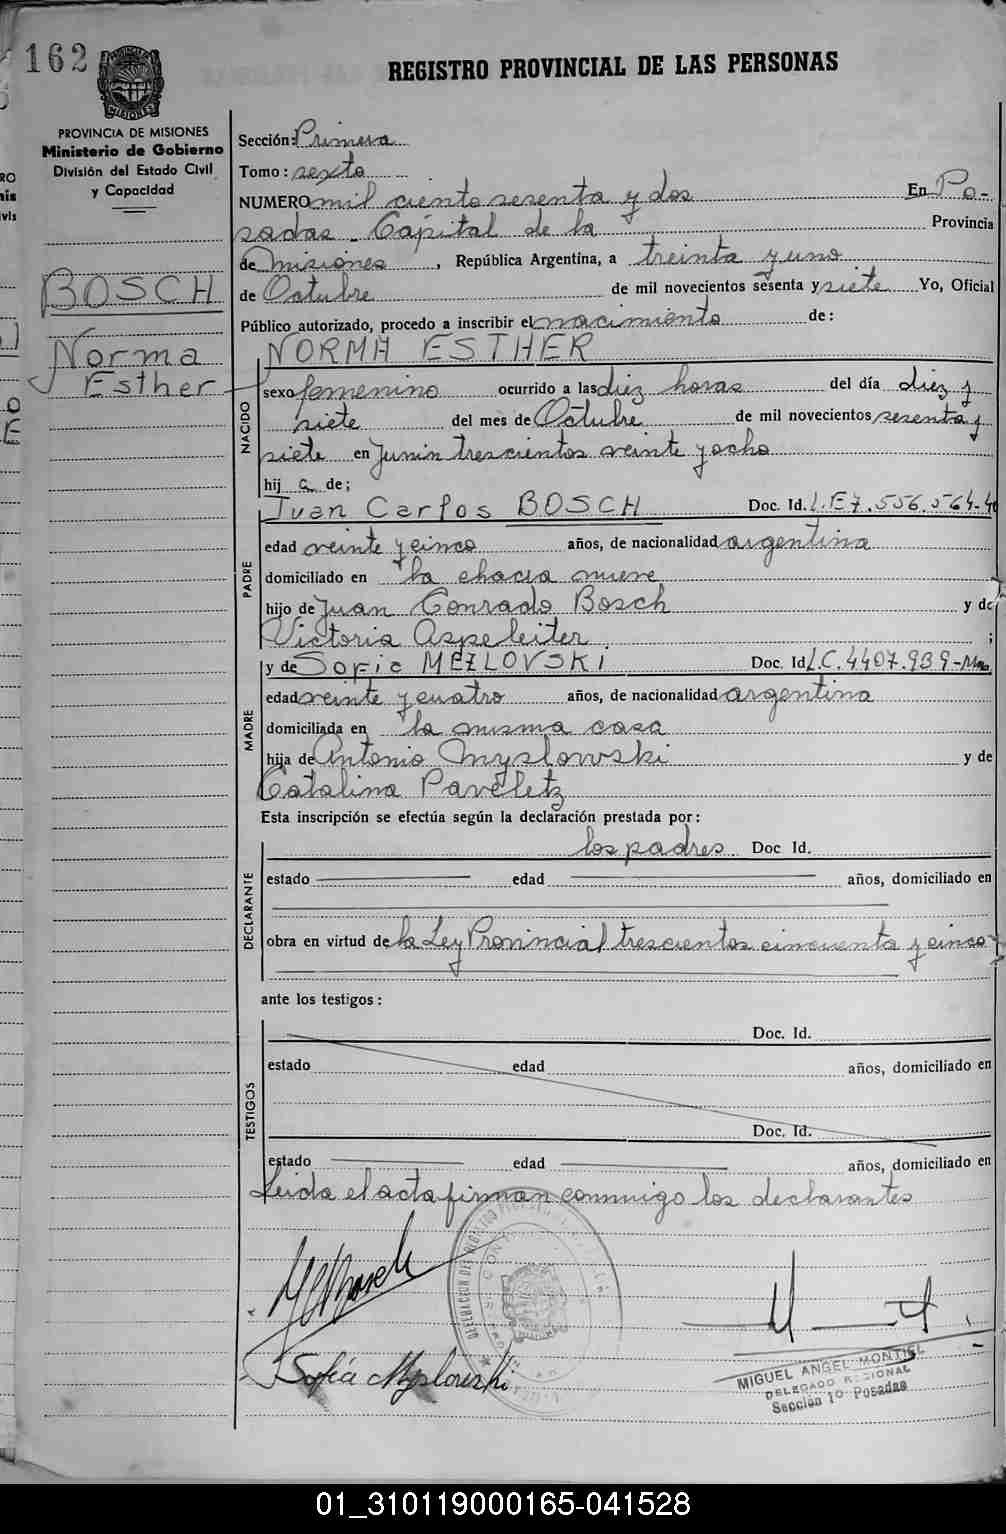 162
REGISTRO PROVINCIAL DE LAS PERSONAS
PROVINCIA DE MISIONES
Ministerio de Gobierno
División del Estado Civil
y Capacidad
BOSCH
Norma
Esther
Sección: Primera
Tomo: sexto
NUMERO mil ciento sesenta y dos En Po-
sadas - Capital de la Provincia
de Misiones, República Argentina, a treinta y uno
de Octubre de mil novecientos sesenta y siete Yo, Oficial
Público autorizado, procedo a inscribir el nacimiento de:
NORMA ESTHER
NACIDO
sexo femenino ocurrido a las diez horas del día diez y
siete del mes de Octubre de mil novecientos sesenta y
siete en Junin trescientos veinte y ocho
hij a de;
PADRE
Juan Carlos BOSCH Doc. Id. L.E 7.556.564-
edad veinte y cinco años, de nacionalidad argentina
domiciliado en la chacra nueve
hijo de Juan Conrado Bosch y de
Victoria Aspeleiter ;
MADRE
y de Sofia MEZLOVSKI Doc. Id L.C. 4407.939-
edad veinte y cuatro años, de nacionalidad argentina
domiciliada en la misma casa
hija de Antonio Myslowski y de
Catalina Paveletz
Esta inscripción se efectúa según la declaración prestada por:
DECLARANTE
los padres Doc. Id.
estado edad años, domiciliado en
obra en virtud de la Ley Provincial trescientos cincuenta y cinco
ante los testigos:
TESTIGOS
Doc. Id.
estado edad años, domiciliado en
Doc. Id.
estado edad años, domiciliado en
Leida el acta firman conmigo los declarantes
Sofía Myslowski
MIGUEL ANGEL MONTIEL
DELEGADO REGIONAL
Sección 1º Posadas
01_310119000165-041528